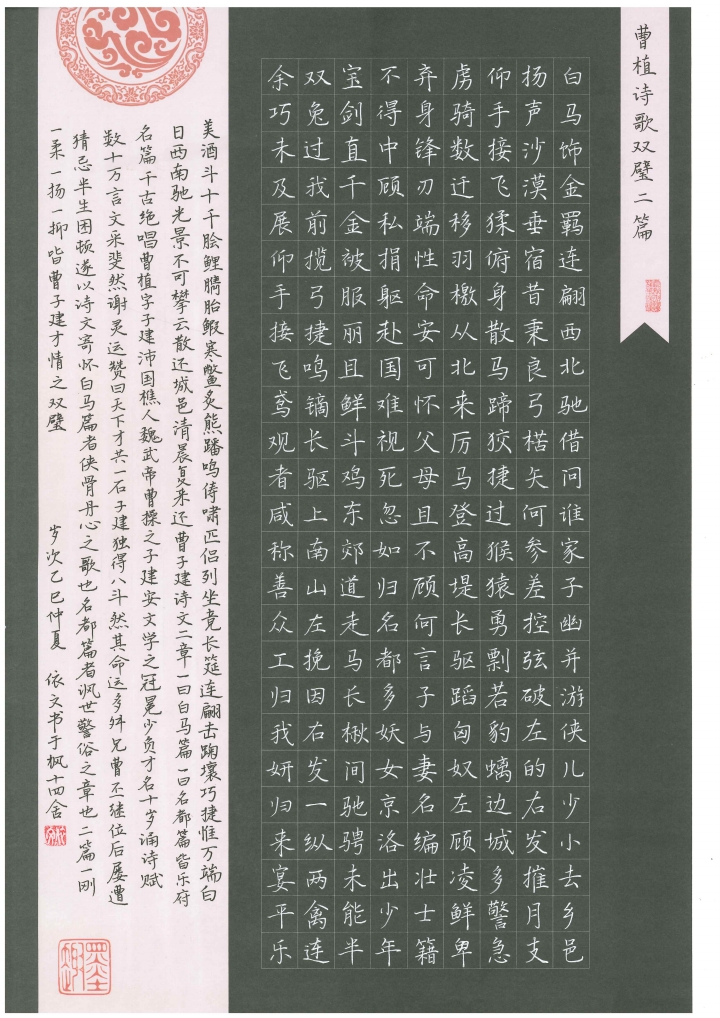 曹植诗歌双璧二篇
白马饰金羁连翩西北驰借问谁家子幽并游侠儿少小去乡邑
扬声沙漠垂宿昔秉良弓楛矢何参差控弦破左的右发摧月支
仰手接飞猱俯身散马蹄狡捷过猴猿勇剽若豹螭边城多警急
虏骑数迁移羽檄从北来厉马登高堤长驱蹈匈奴左顾凌鲜卑
弃身锋刃端性命安可怀父母且不顾何言子与妻名编壮士籍
不得中顾私捐躯赴国难视死忽如归名都多妖女京洛出少年
宝剑直千金被服丽且鲜斗鸡东郊道走马长楸间驰骋未能半
双兔过我前揽弓捷鸣镝长驱上南山左挽因右发一纵两禽连
余巧未及展仰手接飞鸢观者咸称善众工归我妍归来宴平乐
美酒斗十千脍鲤臇胎鰕寒鳖炙熊蹯鸣俦啸匹侣列坐竟长筵连翩击踘壤巧捷惟万端白
日西南驰光景不可攀云散还城邑清晨复来还曹子建诗文二章一曰白马篇一曰名都篇皆乐府
名篇千古绝唱曹植字子建沛国樵人魏武帝曹操之子建安文学之冠冕少负才名十岁诵诗赋
数十万言文采斐然谢灵运赞曰天下才共一石子建独得八斗然其命运多舛兄曹丕继位后屡遭
猜忌半生困顿遂以诗文寄怀白马篇者侠骨丹心之歌也名都篇者讽世警俗之章也二篇一刚
一柔一扬一抑皆曹子建才情之双璧
岁次乙巳仲夏 依文书于枫十四舍
墨趣